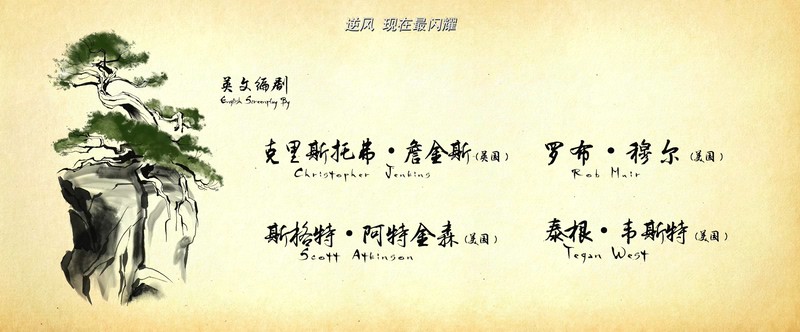 逆风 现在最闪耀
英文编剧
English Screenplay By
克里斯托弗·詹金斯(英国)
Christopher Jenkins
罗布·穆尔(美国)
Rob Muir
斯格特·阿特金森(美国)
Scott Atkinson
泰根·韦斯特(美国)
Tegan West